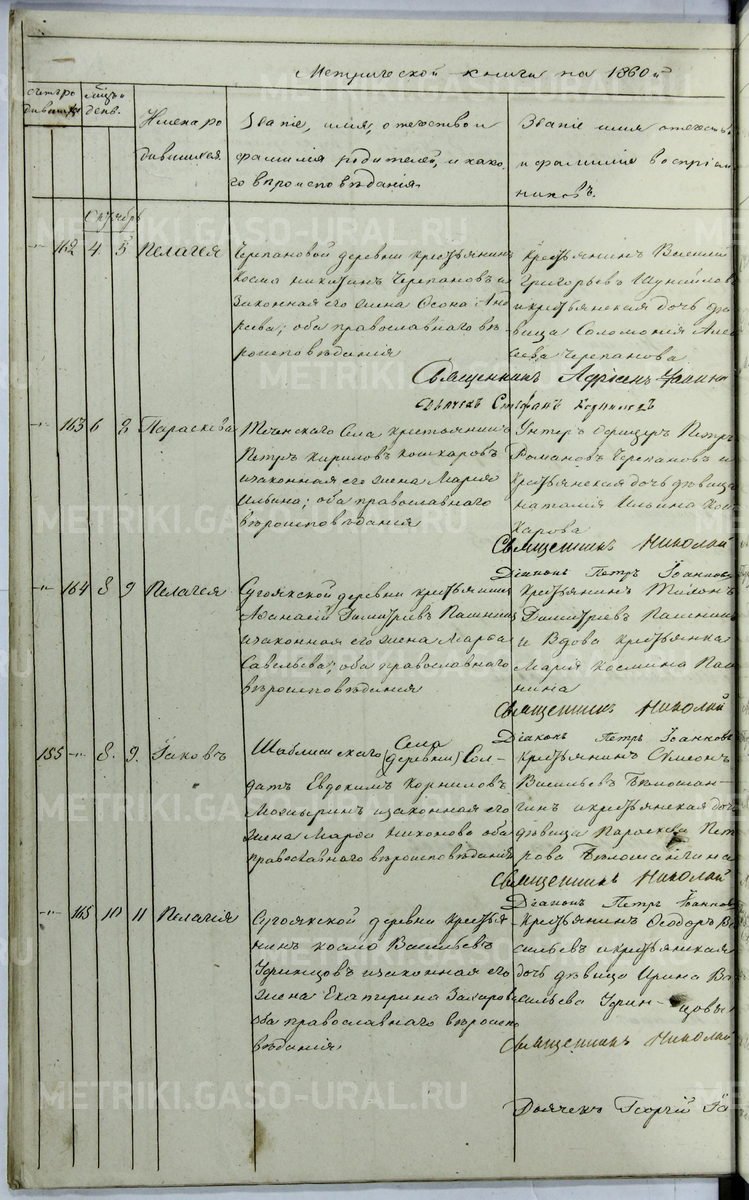 Метрической книги на 1860й
счетъ ро
дившихся
мѣсяцъ и
день.
Имена ро
дившихся.
Званіе, имя, отчество и
фамилія родителей, и како-
го вѣроисповѣданія.
Званіе имя отчест
и фамилія воспріем
никовъ.
Октябрь
162 4. 5 Пелагея
Черепановой деревни крестьянинъ
Косма Никитинъ Черепановъ и
Законная его жена Ѳеона Анд
реева; оба православнаго вѣ
роисповѣданія
Крестьянинъ Василій
Григорьевъ
и крестьянская дочь дѣ
вица Соломонія Алек
сѣева Черепанова
Священникъ Адріанъ
Дьячекъ Стефанъ
163 6 9 Параскева
Теченскаго Села крестьянинъ
Петръ Кириловъ Кошкаровъ
и законная его жена Марія
Ильина; оба православнаго
вѣроисповѣданія
Унтеръ Офицеръ Петръ
Романовъ Черепановъ и
Крестьянская дочь дѣвица
Наталія Ильина Кош
карова
Священникъ Николай
Діаконъ Петръ Іоанновъ
164 8 9 Пелагея
Сугоякской деревни крестьянинъ
Аѳанасій Димитріевъ Пашнинъ
и законная его жена Марѳа
Савельева; оба православнаго
вѣроисповѣданія
Крестьянинъ
Димитріевъ Пашнинъ
и Вдова крестьянка
Марія Космина Паш
нина
Священникъ Николай
Діаконъ Петръ Іоанновъ
155 8. 9. Іаковъ
Села
Шаблишскаго (деревни) Сол-
датъ Евдокимъ Корниловъ
Мозыринъ и законная его
жена Марѳа Никонова оба
православнаго вѣроисповѣданія
Крестьянинъ Симеонъ
Васильевъ
и крестьянская дочь
дѣвица Параскева Пет
рова
Священникъ Николай
Діаконъ Петръ Іоанновъ
165 10 11 Пелагія
Сугоякской деревни крестья
нинъ Косма Васильевъ
Уфинцовъ и законная его
жена Екатерина Захарова
оба православнаго вѣроиспо
вѣданія
Крестьянинъ Ѳеодоръ Ва
сильевъ и крестьянская
дочь дѣвица Ирина Ва
сильева Уфин-цовы
Священникъ Николай
Дьячекъ Георгій
METRIKI.GASO-URAL.RU